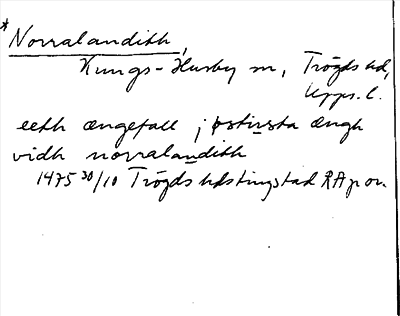 * Norralandith,
Kungs-Husby sn, Trögds hd,
Upps. l.
eeth ængefall j østirsta ængh
vidh norralandith
1475 30/10 Trögds hdstingstad RAp or.